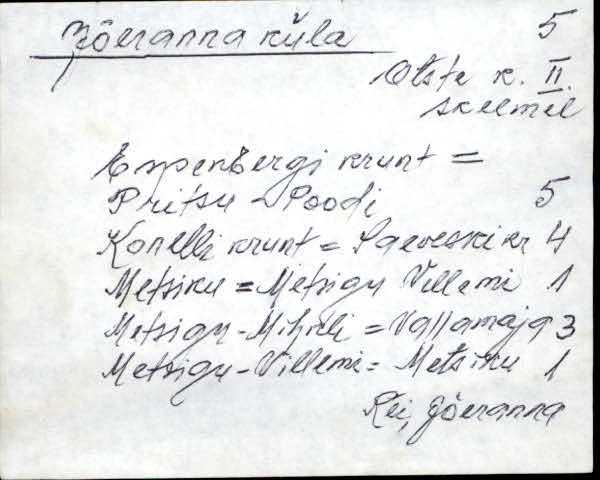 Jõeranna küla 5
Otste k. II
skeemil
Enpenbergi krunt =
Pritsu-Poodi 5
Korelli krunt = Saeveski kr 4
Metsiku = Metsigu Villemi 1
Metsigu-Mihkli = Vallamaja 3
Metsigu-Villemi = Metsiku 1
Rei, Jõeranna